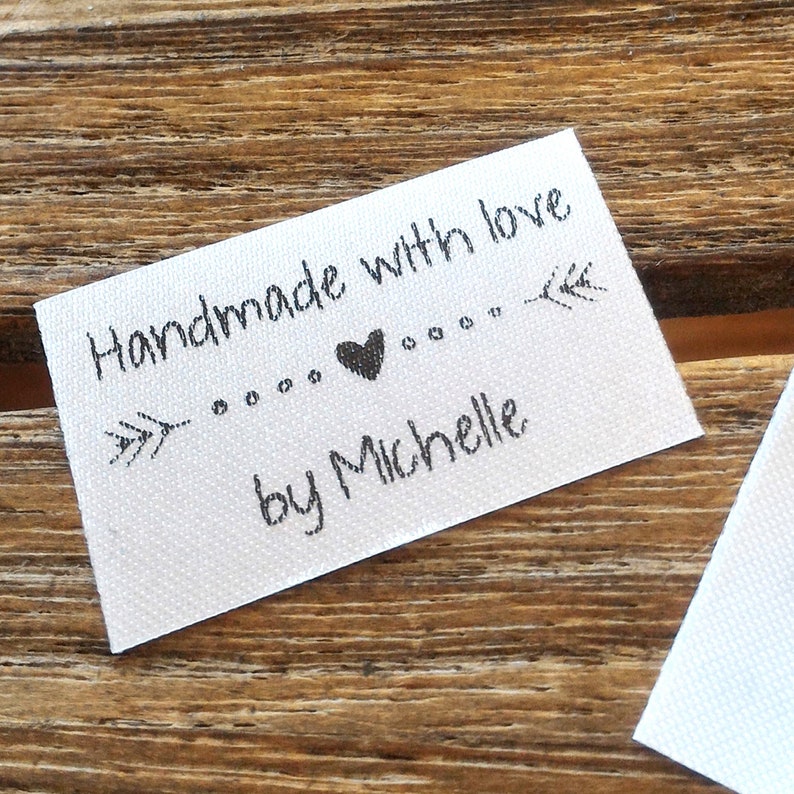 Handmade with love
by Michelle